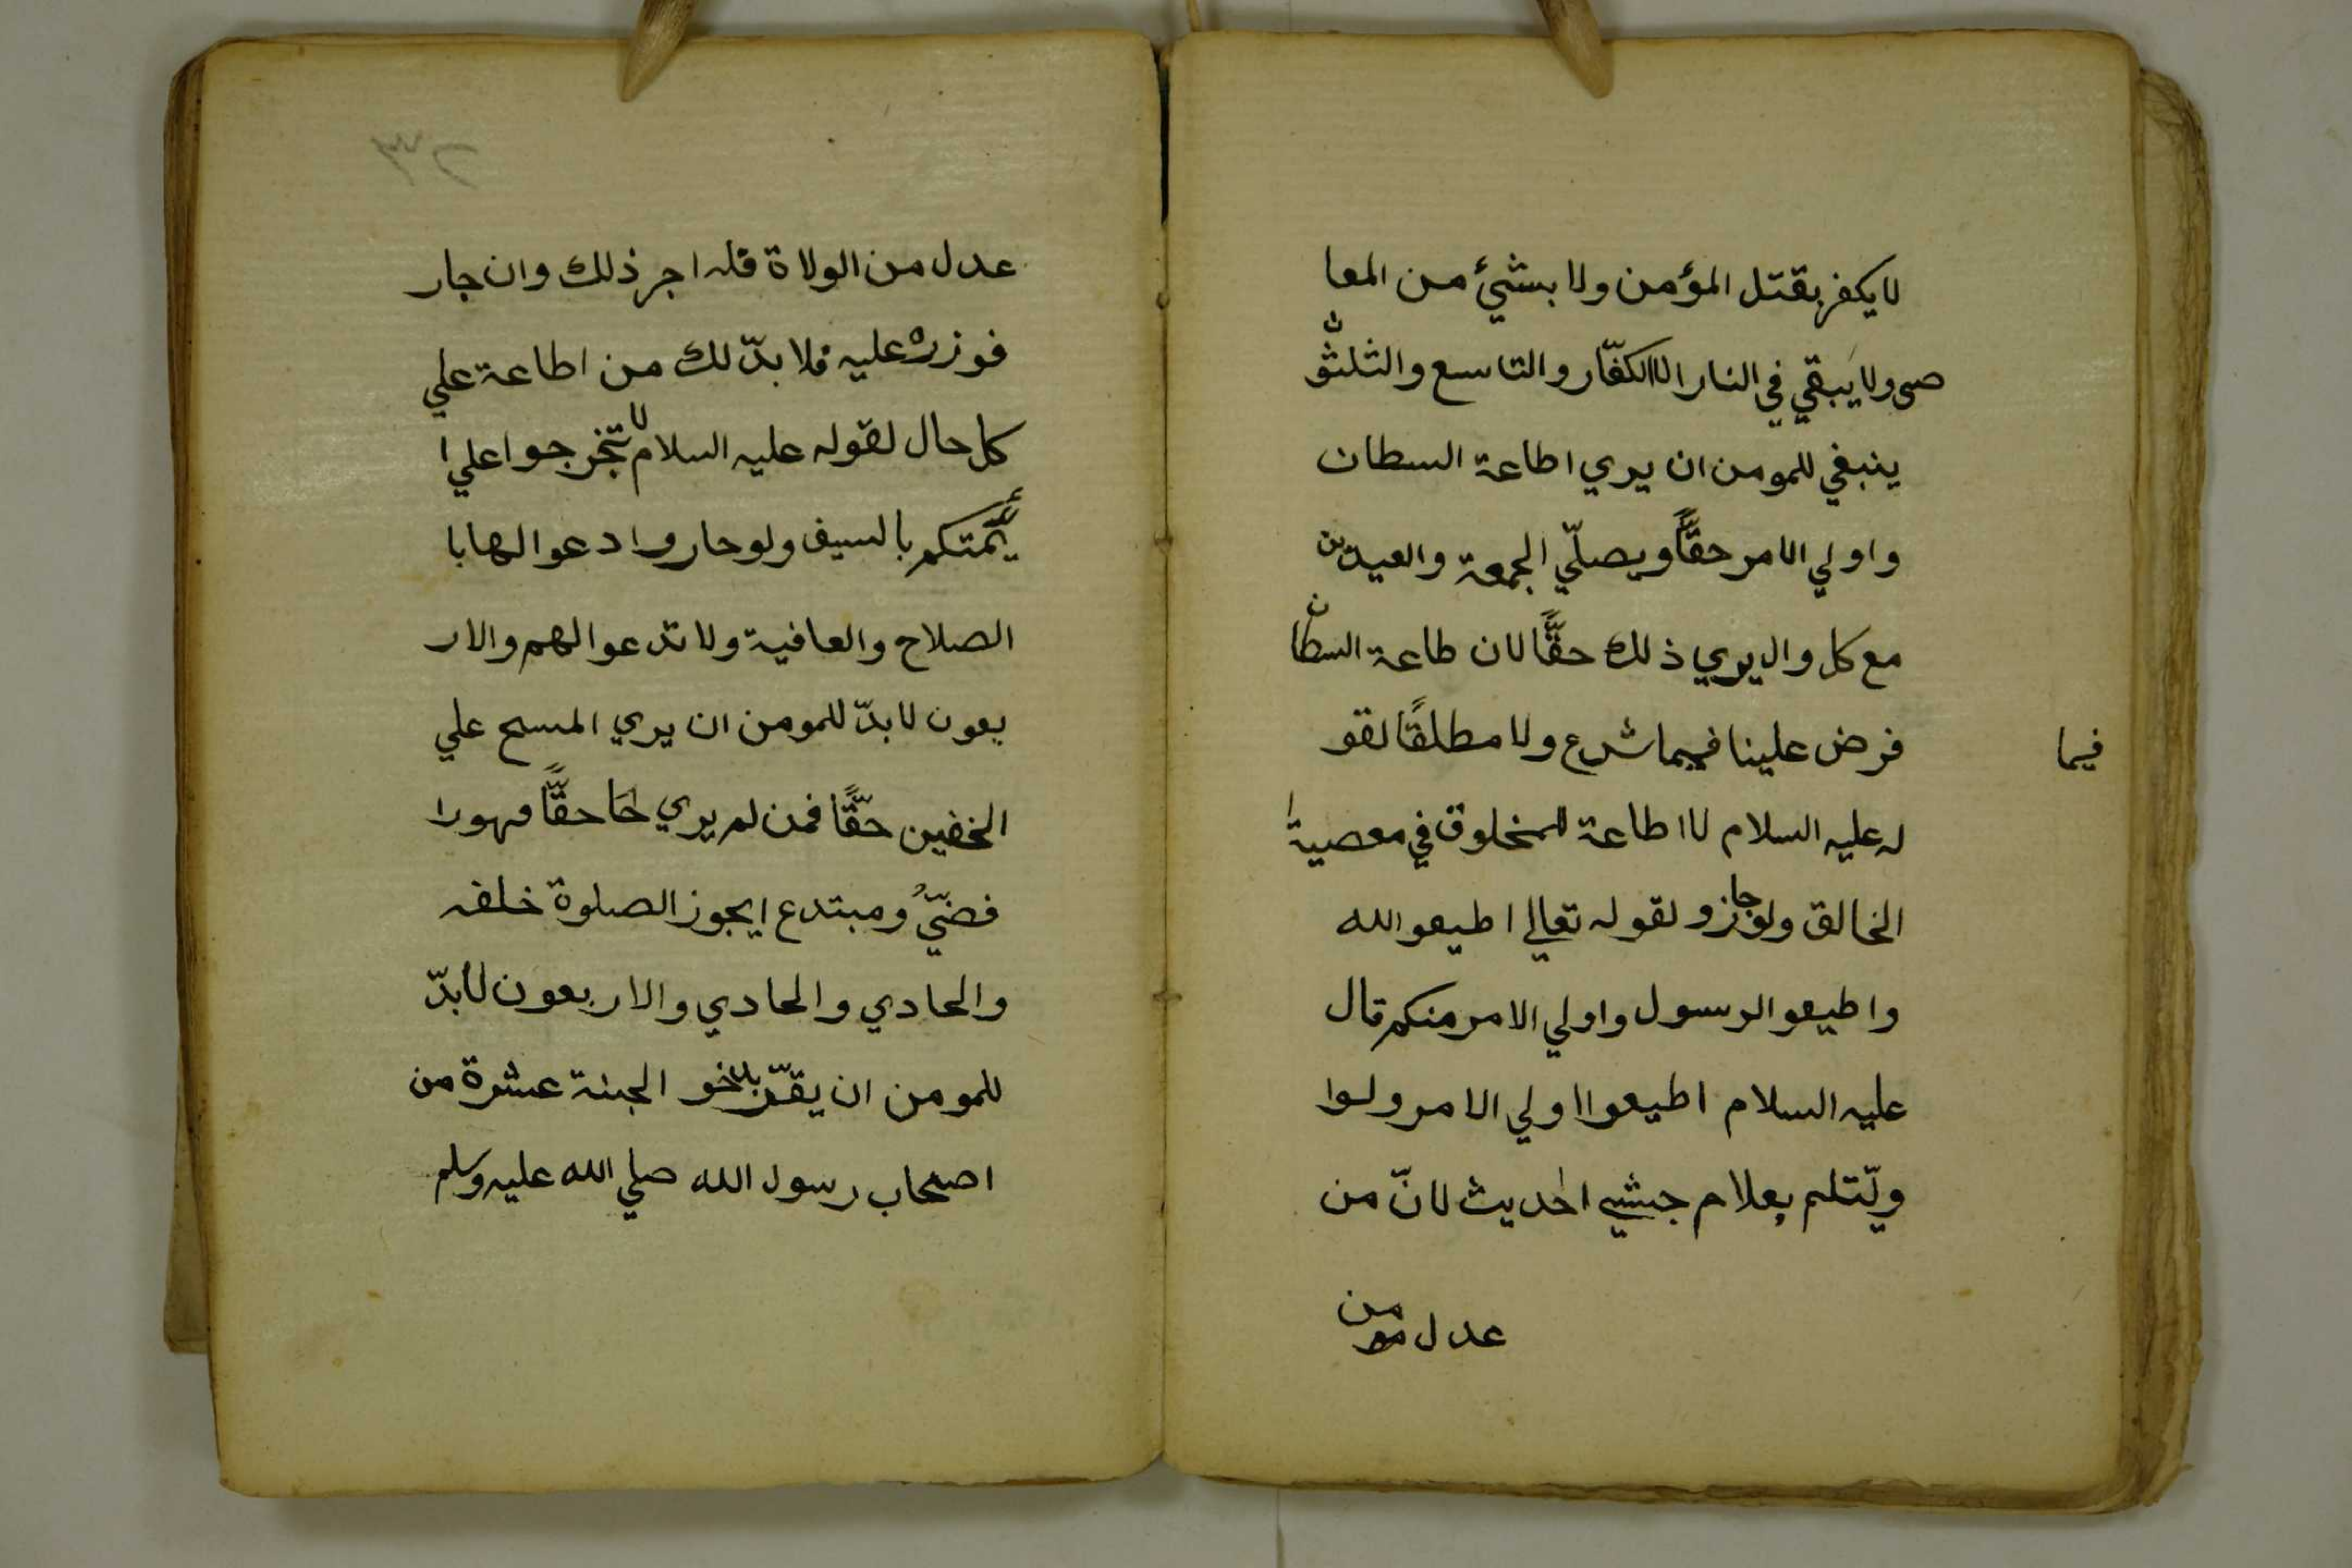 لا يكفر بقتل المؤمن ولا بشئ من المعا
صى ولا يبقي في النار الا الكفّار والتاسع والثلثو
ن
ينبغي للمومن ان يري اطاعة السطان
واولي الامر حقًّا ويصلّي الجمعة والعيدين
مع كل وال يري ذلك حقًّا لان طاعة السطان
فرض علينا فيما شرع ولا مطلقًا لقو
فيما
له عليه السلام لا اطاعة للمخلوق في معصية
الخالق ولو جازو لقوله تعالي اطيعو الله
واطيعو الرسول واولي الامر منكم قال
عليه السلام اطيعوا اولي الامر ولوا
ويّتلم بعلام جشي الحديث لانّ من
عدل من
عدل من الولاة قله اجر ذلك وان جار
فوزره عليه فلا بدّ لك من اطاعة علي
كل حال لقوله عليه السلام لا تخرجوا علي ا
ئمّتكم بالسيف ولو حاروا ادعوا لها با
الصلاح والعافية ولا تدعوا لهم والار
بعون لا بدّ للمومن ان يري المسح علي
الخفين حقًّا فمن لم يري حقًّا فهورا
فضيّ ومبتدع ايجوز الصلوة خلفه
والحادي والحادي والاربعون لا بدّ
للمومن ان يقرّ الجنة عشرة من
اصحاب رسول الله صلي الله عليه وسلم
٢٣